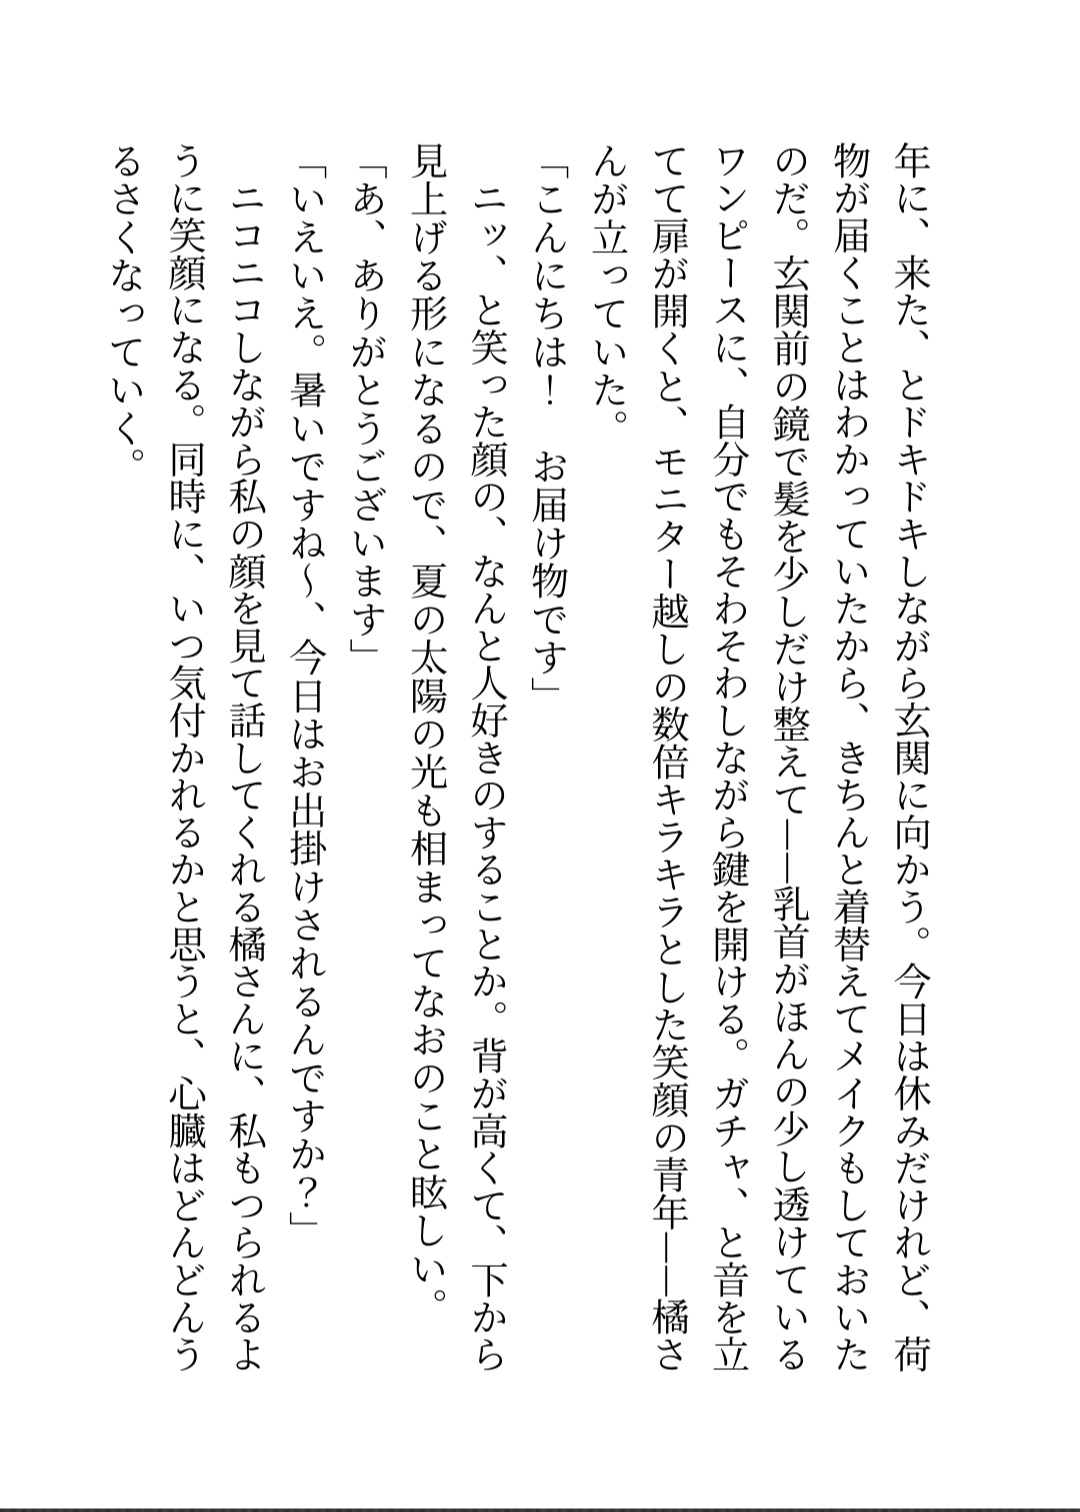 年に、来た、とドキドキしながら玄関に向かう。今日は休みだけれど、荷
物が届くことはわかっていたから、きちんと着替えてメイクもしておいた
のだ。玄関前の鏡で髪を少しだけ整えて――乳首がほんの少し透けている
ワンピースに、自分でもそわそわしながら鍵を開ける。ガチャ、と音を立
てて扉が開くと、モニター越しの数倍キラキラとした笑顔の青年――橘さ
んが立っていた。
「こんにちは！　お届け物です」
　ニッ、と笑った顔の、なんと人好きのすることか。背が高くて、下から
見上げる形になるので、夏の太陽の光も相まってなおのこと眩しい。
「あ、ありがとうございます」
「いえいえ。暑いですね〜、今日はお出掛けされるんですか？」
　ニコニコしながら私の顔を見て話してくれる橘さんに、私もつられるよ
うに笑顔になる。同時に、いつ気付かれるかと思うと、心臓はどんどんう
るさくなっていく。